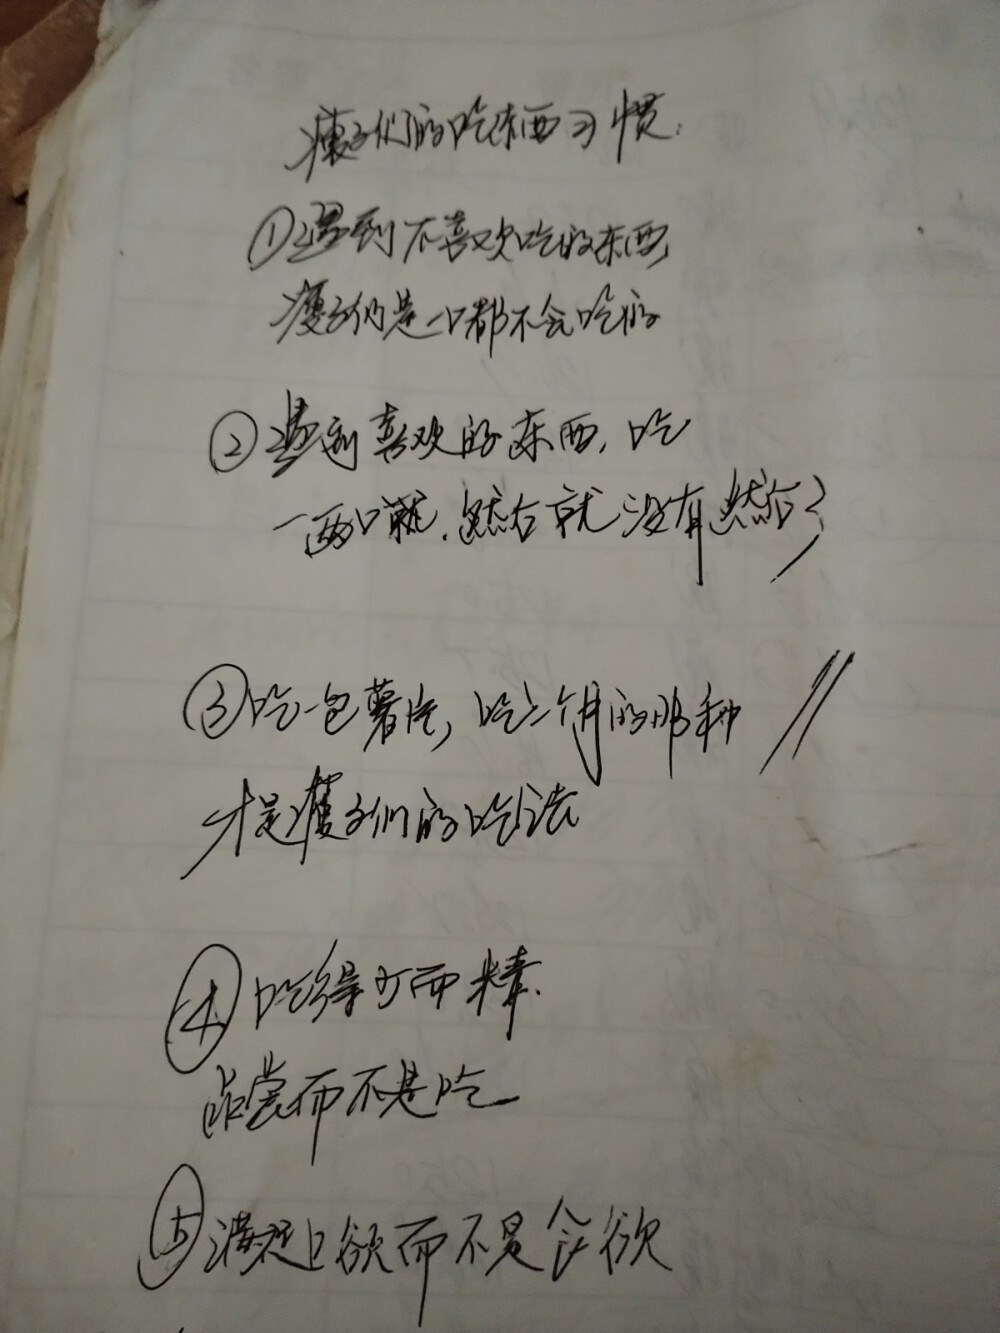 瘦子们的吃东西习惯:
①遇到不喜欢吃的东西,
瘦子们是一口都不会吃的
②遇到喜欢的东西,吃
一两口就,然后就没有然后了
③吃一包薯片,吃二个月的那种
才是瘦子们的吃法
④吃得少而精.
品尝而不是吃
⑤满足口欲而不是食欲